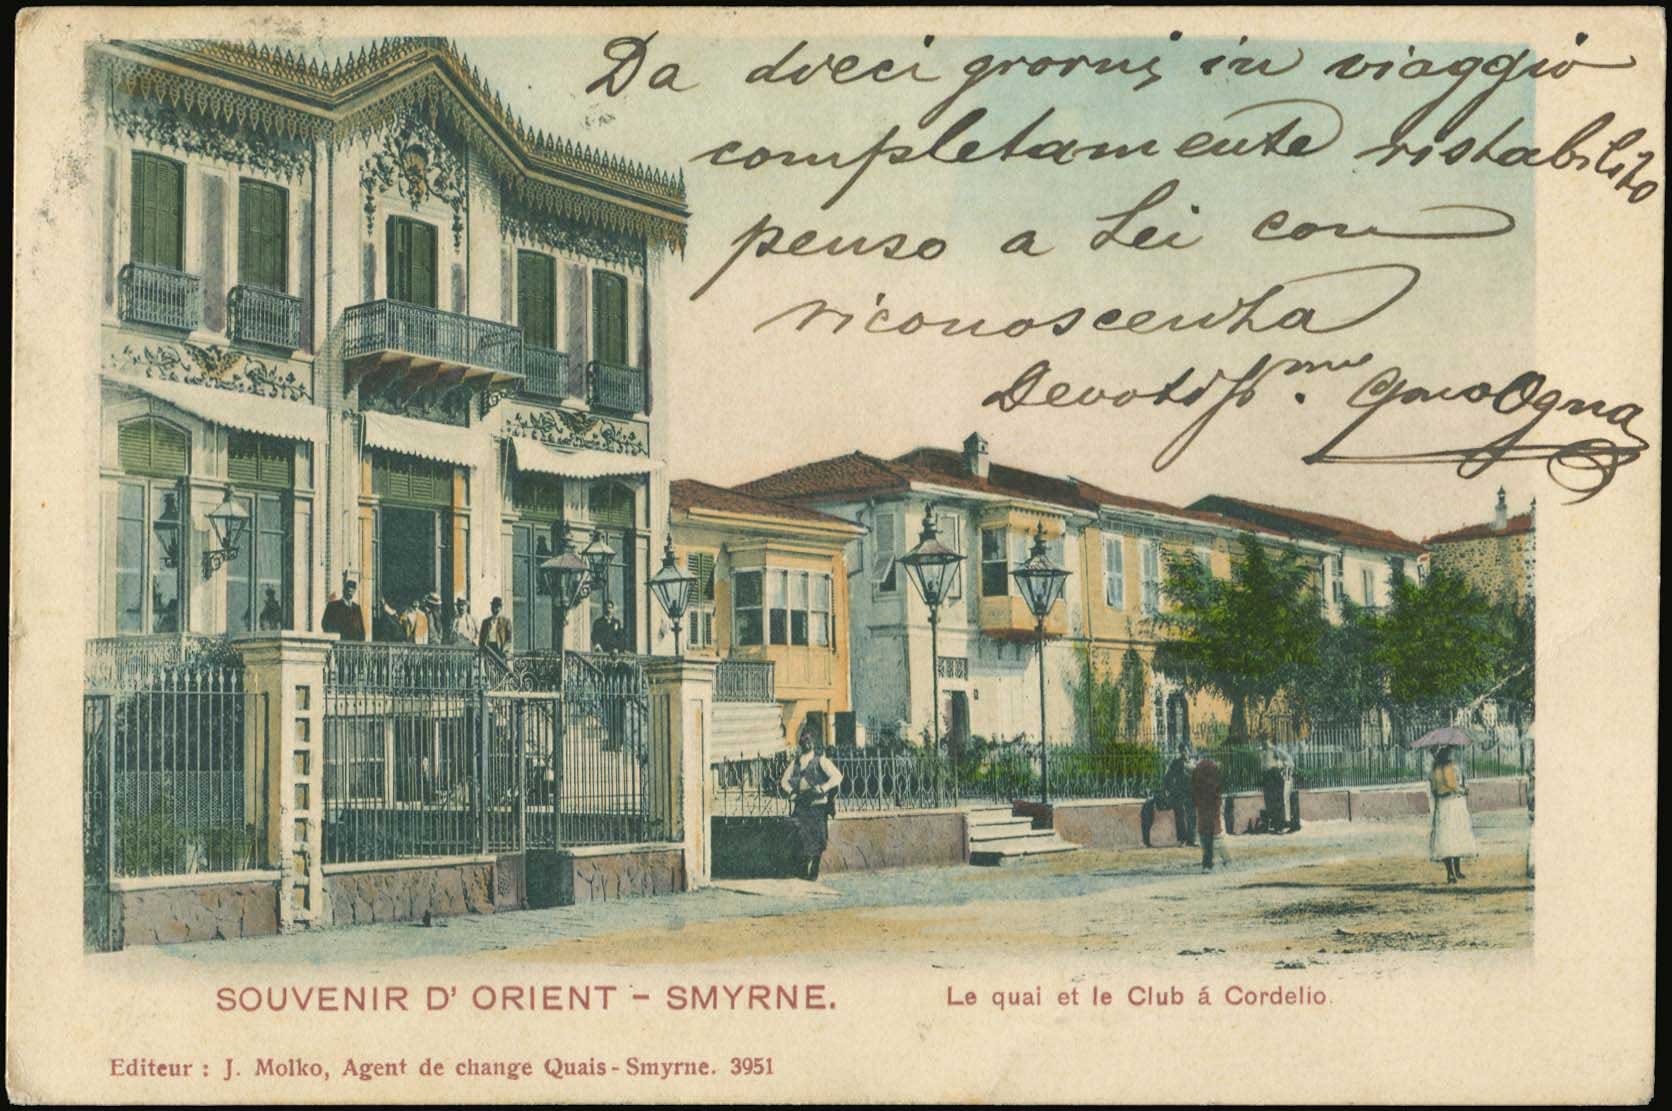 Da dieci giorni in viaggio
completamente ristabilito
penso a Lei con
riconoscenza
Devotiss.mo Ogna
SOUVENIR D' ORIENT - SMYRNE.
Le quai et le Club á Cordelio.
Editeur : J. Molko, Agent de change Quais - Smyrne. 3951